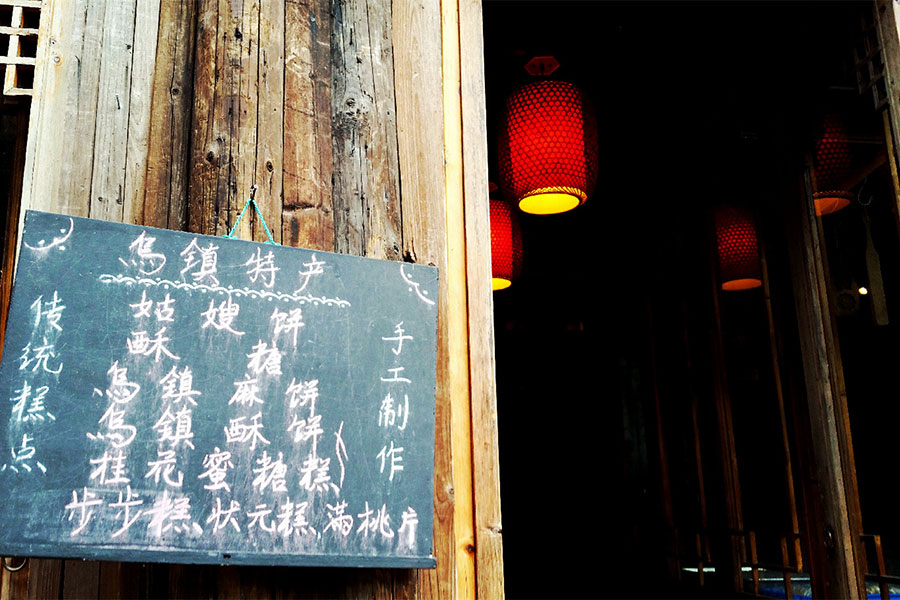 乌镇特产
传统糕点
姑嫂饼
酥糖
乌镇麻饼
乌镇酥饼
桂花蜜糖糕
步步糕、状元糕、满桃片
手工制作